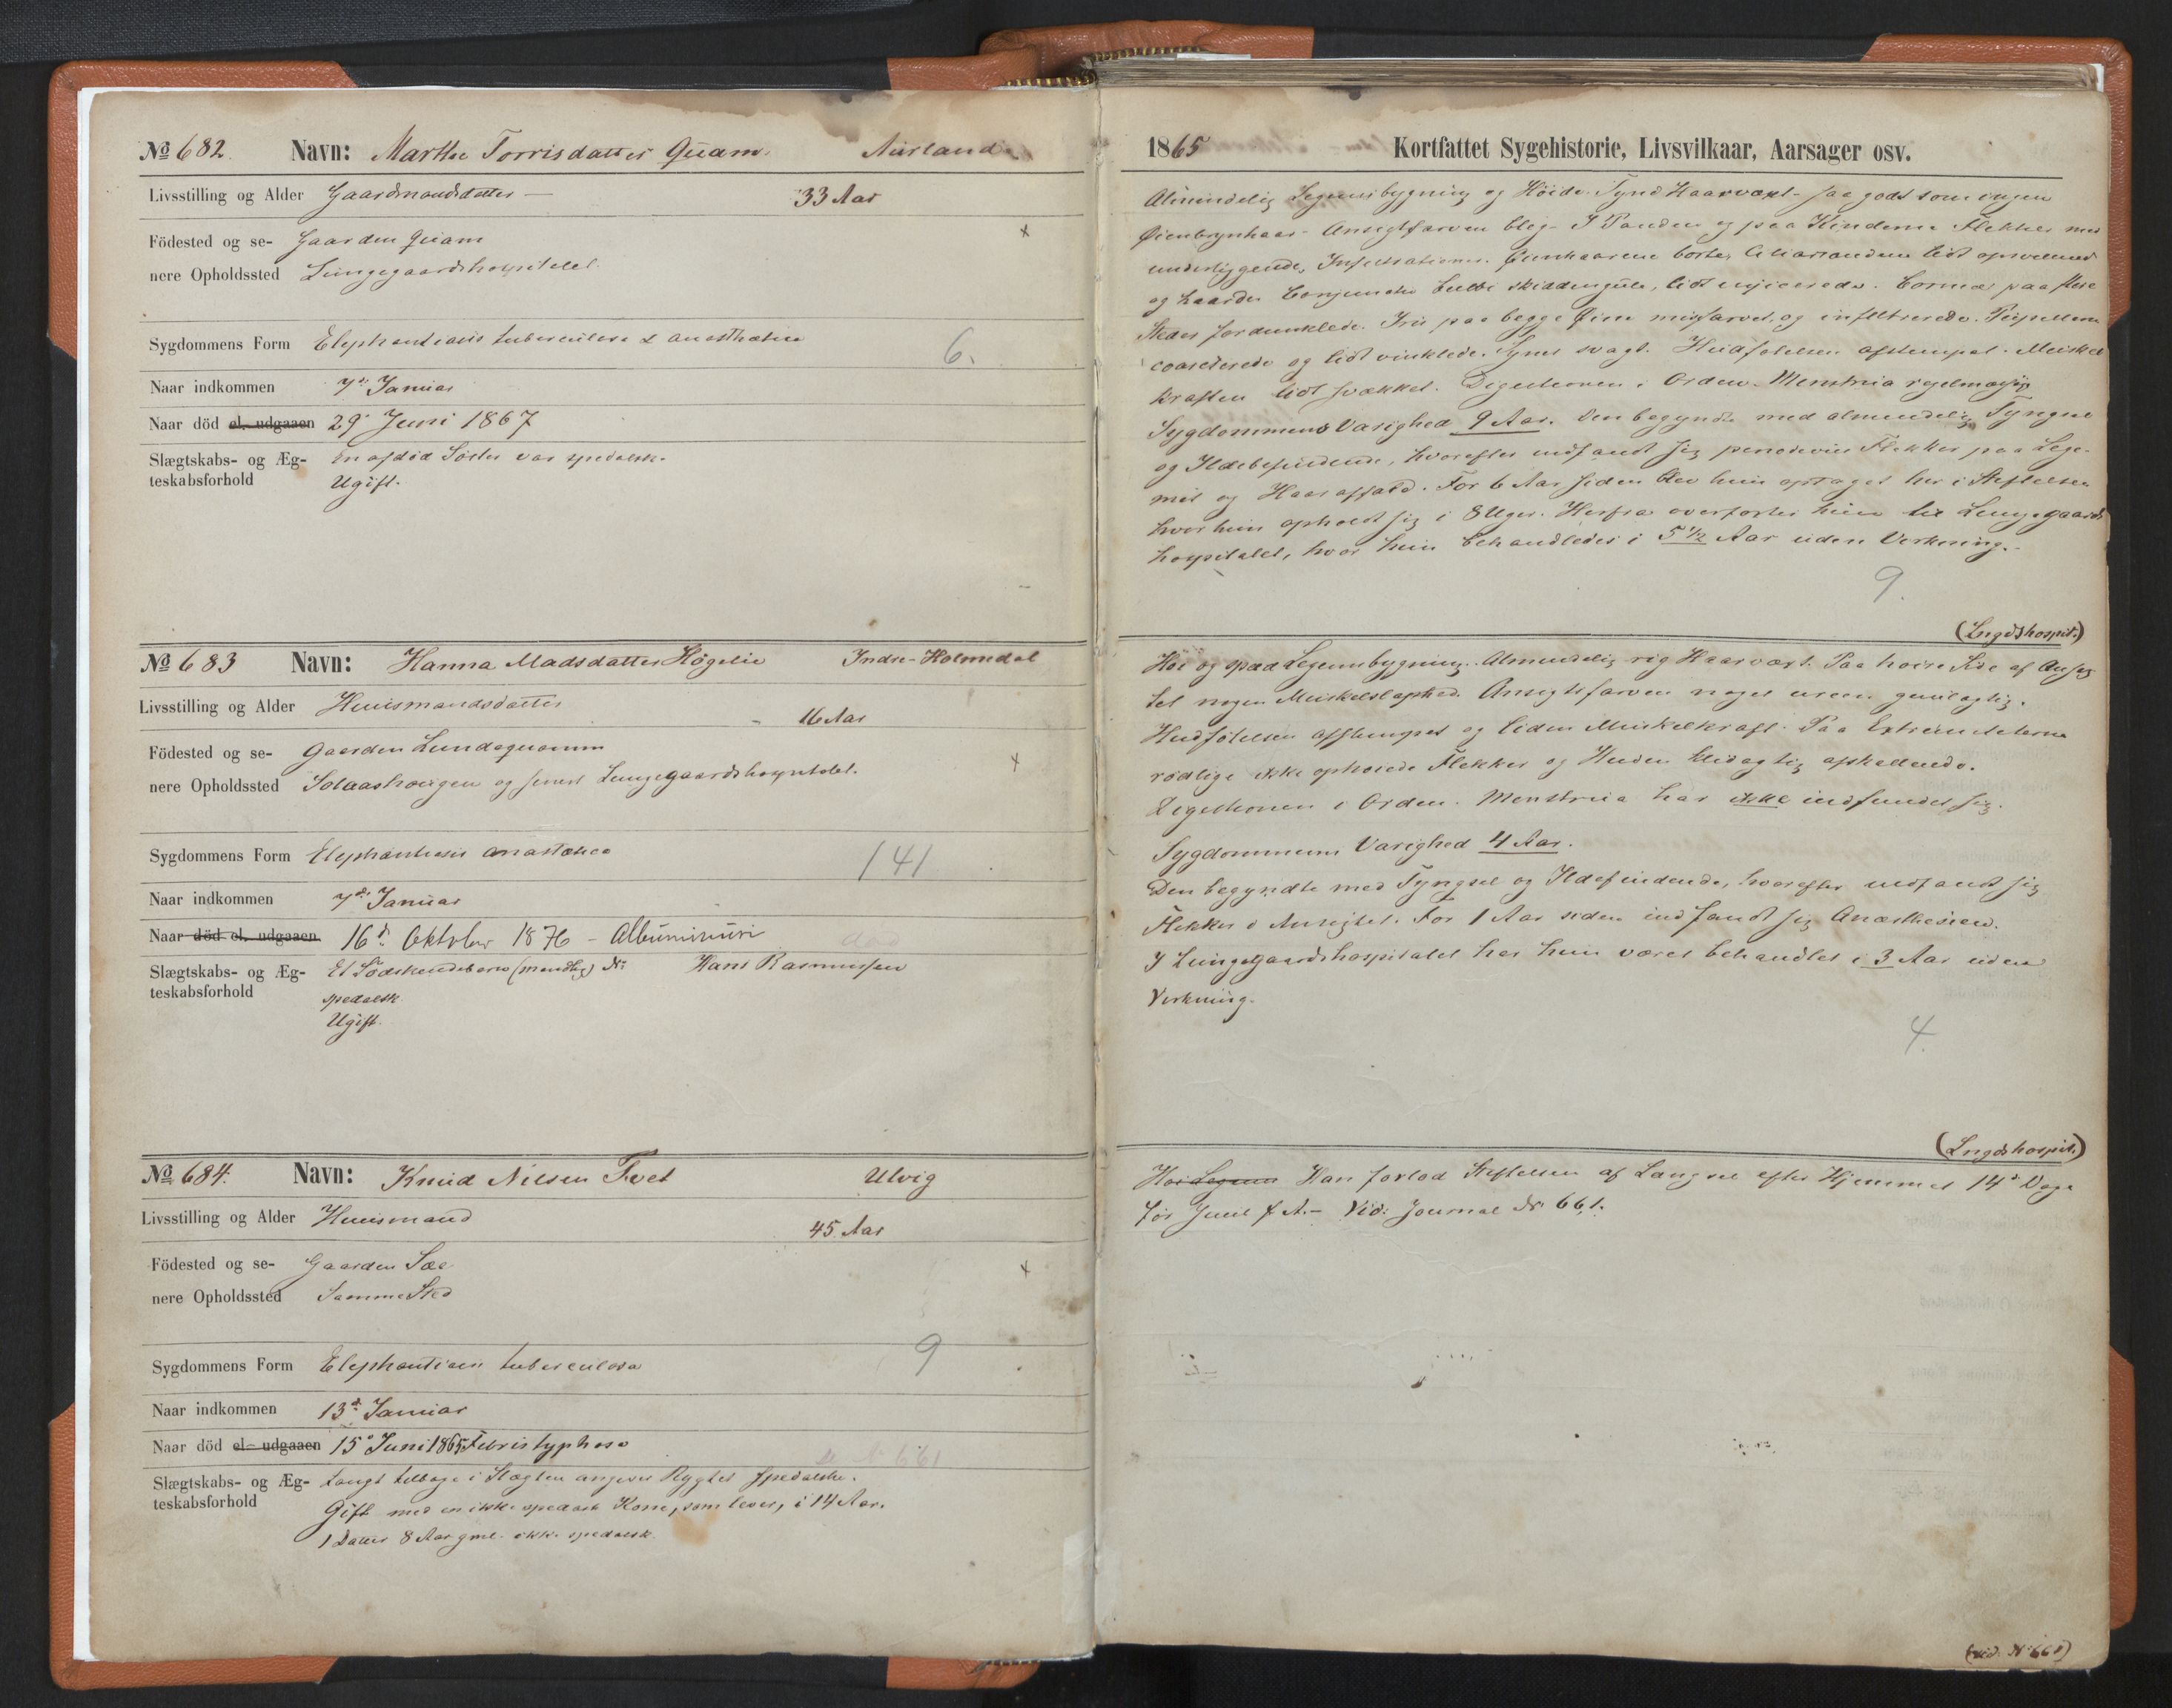 № 682. Navn: Marthe Torrisdatter Qvam. Aurland
Livsstilling og Alder Gaardmandsdatter — 33 Aar
Födested og se- Gaarden Qvam
nere Opholdssted Lungegaardshospitalet.
Sygdommens Form Elephantiasis tuberculosa & anæsthetica 6.
Naar indkommen 7de Januar
Naar död el. udgaaen 29' Juni 1867
Slægtskabs- og Æg- En afdöd Söster var spedalsk.
teskabsforhold Ugift.
№ 683 Navn: Hanna Madsdatter Högelie Indre-Holmedal
Livsstilling og Alder Huusmandsdatter 16 Aar
Födested og se- Gaarden Lundeqvamm
nere Opholdssted Solaashougen og senest Lungegaardshospitalet.
Sygdommens Form Elephantiasis anæstetica 141
Naar indkommen 7de Januar
Naar död el. udgaaen 16d. Oktober 1876 - Albuminuri
Slægtskabs- og Æg- Et Södskendebarn (mandlig) N: Hans Rasmussen
teskabsforhold spedalsk.
Ugift.
№ 684. Navn: Knud Nilsen Tvet Ulvig
Livsstilling og Alder Huusmand 45 Aar
Födested og se- Gaarden Sæ
nere Opholdssted Samme Sted
Sygdommens Form Elephantiasis tuberculosa 9
Naar indkommen 13d. Januar
Naar död el. udgaaen 15d Juni 1865. Febris typhosa
Slægtskabs- og Æg- Langt tilbage i Slægten angives Rygtet spedalske.
teskabsforhold Gift med en ikke spedalsk Kone, som lever, i 14 Aar.
1 Datter 8 Aar gml. ikke spedalsk.
1865 Kortfattet Sygehistorie, Livsvilkaar, Aarsager osv.
Almindelig Legemsbygning og Höide. Tynd Haarvæxt - saa godt som ingen
Öienbrynhaar - Ansigtsfarven bleg - I Panden og paa Kinderne Flekker med
underliggende Infiltrationer. Öienhaarene borte, Ciliarrandene lidt opsvulmed
og haarde. Conjunctiva bulbi skiddengule, lidt injicerede. Cornea paa flere
Steder fordunklede. Iris paa begge Öine misfarvet og infiltrerede. Pupillerne
coarcterede og lidt vinklede. Synet svagt. Hudfölelsen afstumpet. Muskel
kraften lidt svækket. Digestionen i Orden. Menstrua regelmæssig
Sygdommens Varighed 9 Aar. Den begyndte med almindelig Tyngsel
og Ildebefindende, hvorefter indfandt sig periodevis Flekker paa Lege-
met og Haaraffald. For 6 Aar siden blev hun optaget her i Stiftelsen
hvor hun opholdt sig i 8 Uger. Herfra overfortes hun til Lungegaards
hospitalet, hvor hun behandledes i 5 1/2 Aar uden Virkning.-
9.
(Lngdshospit.)
Höi og spæd Legemsbygning. Almindelig rig Haarvæxt. Paa höire Side af Ansig
tet nogen Muskelslaphed. Ansigtsfarven noget ureen guulagtig.
Hudfölelsen afstumpet og liden Muskelkraft. Paa Extremiteterne
rödlige ikke ophöiede Flekker og Huden klidagtig afskallende.
Digestionen i Orden. Menstrua har ikke indfundet sig.
Sygdommens Varighed 4 Aar.
Den begyndte med Tyngsel og Ildefindende, hvorefter indfandt sig
Flekker i Ansigtet. For 1 Aar siden indfandt sig Anæsthesien.
I Lungegaardshospitalet har hun været behandlet i 3 Aar uden
Virkning.
4.
(Lngdshospit.)
Höi Legem Han forlod Stiftelsen af Længsel efter Hjemmet 14d Dage
för Juul f. A.- Vid: Journal № 661.
(vid. № 661)